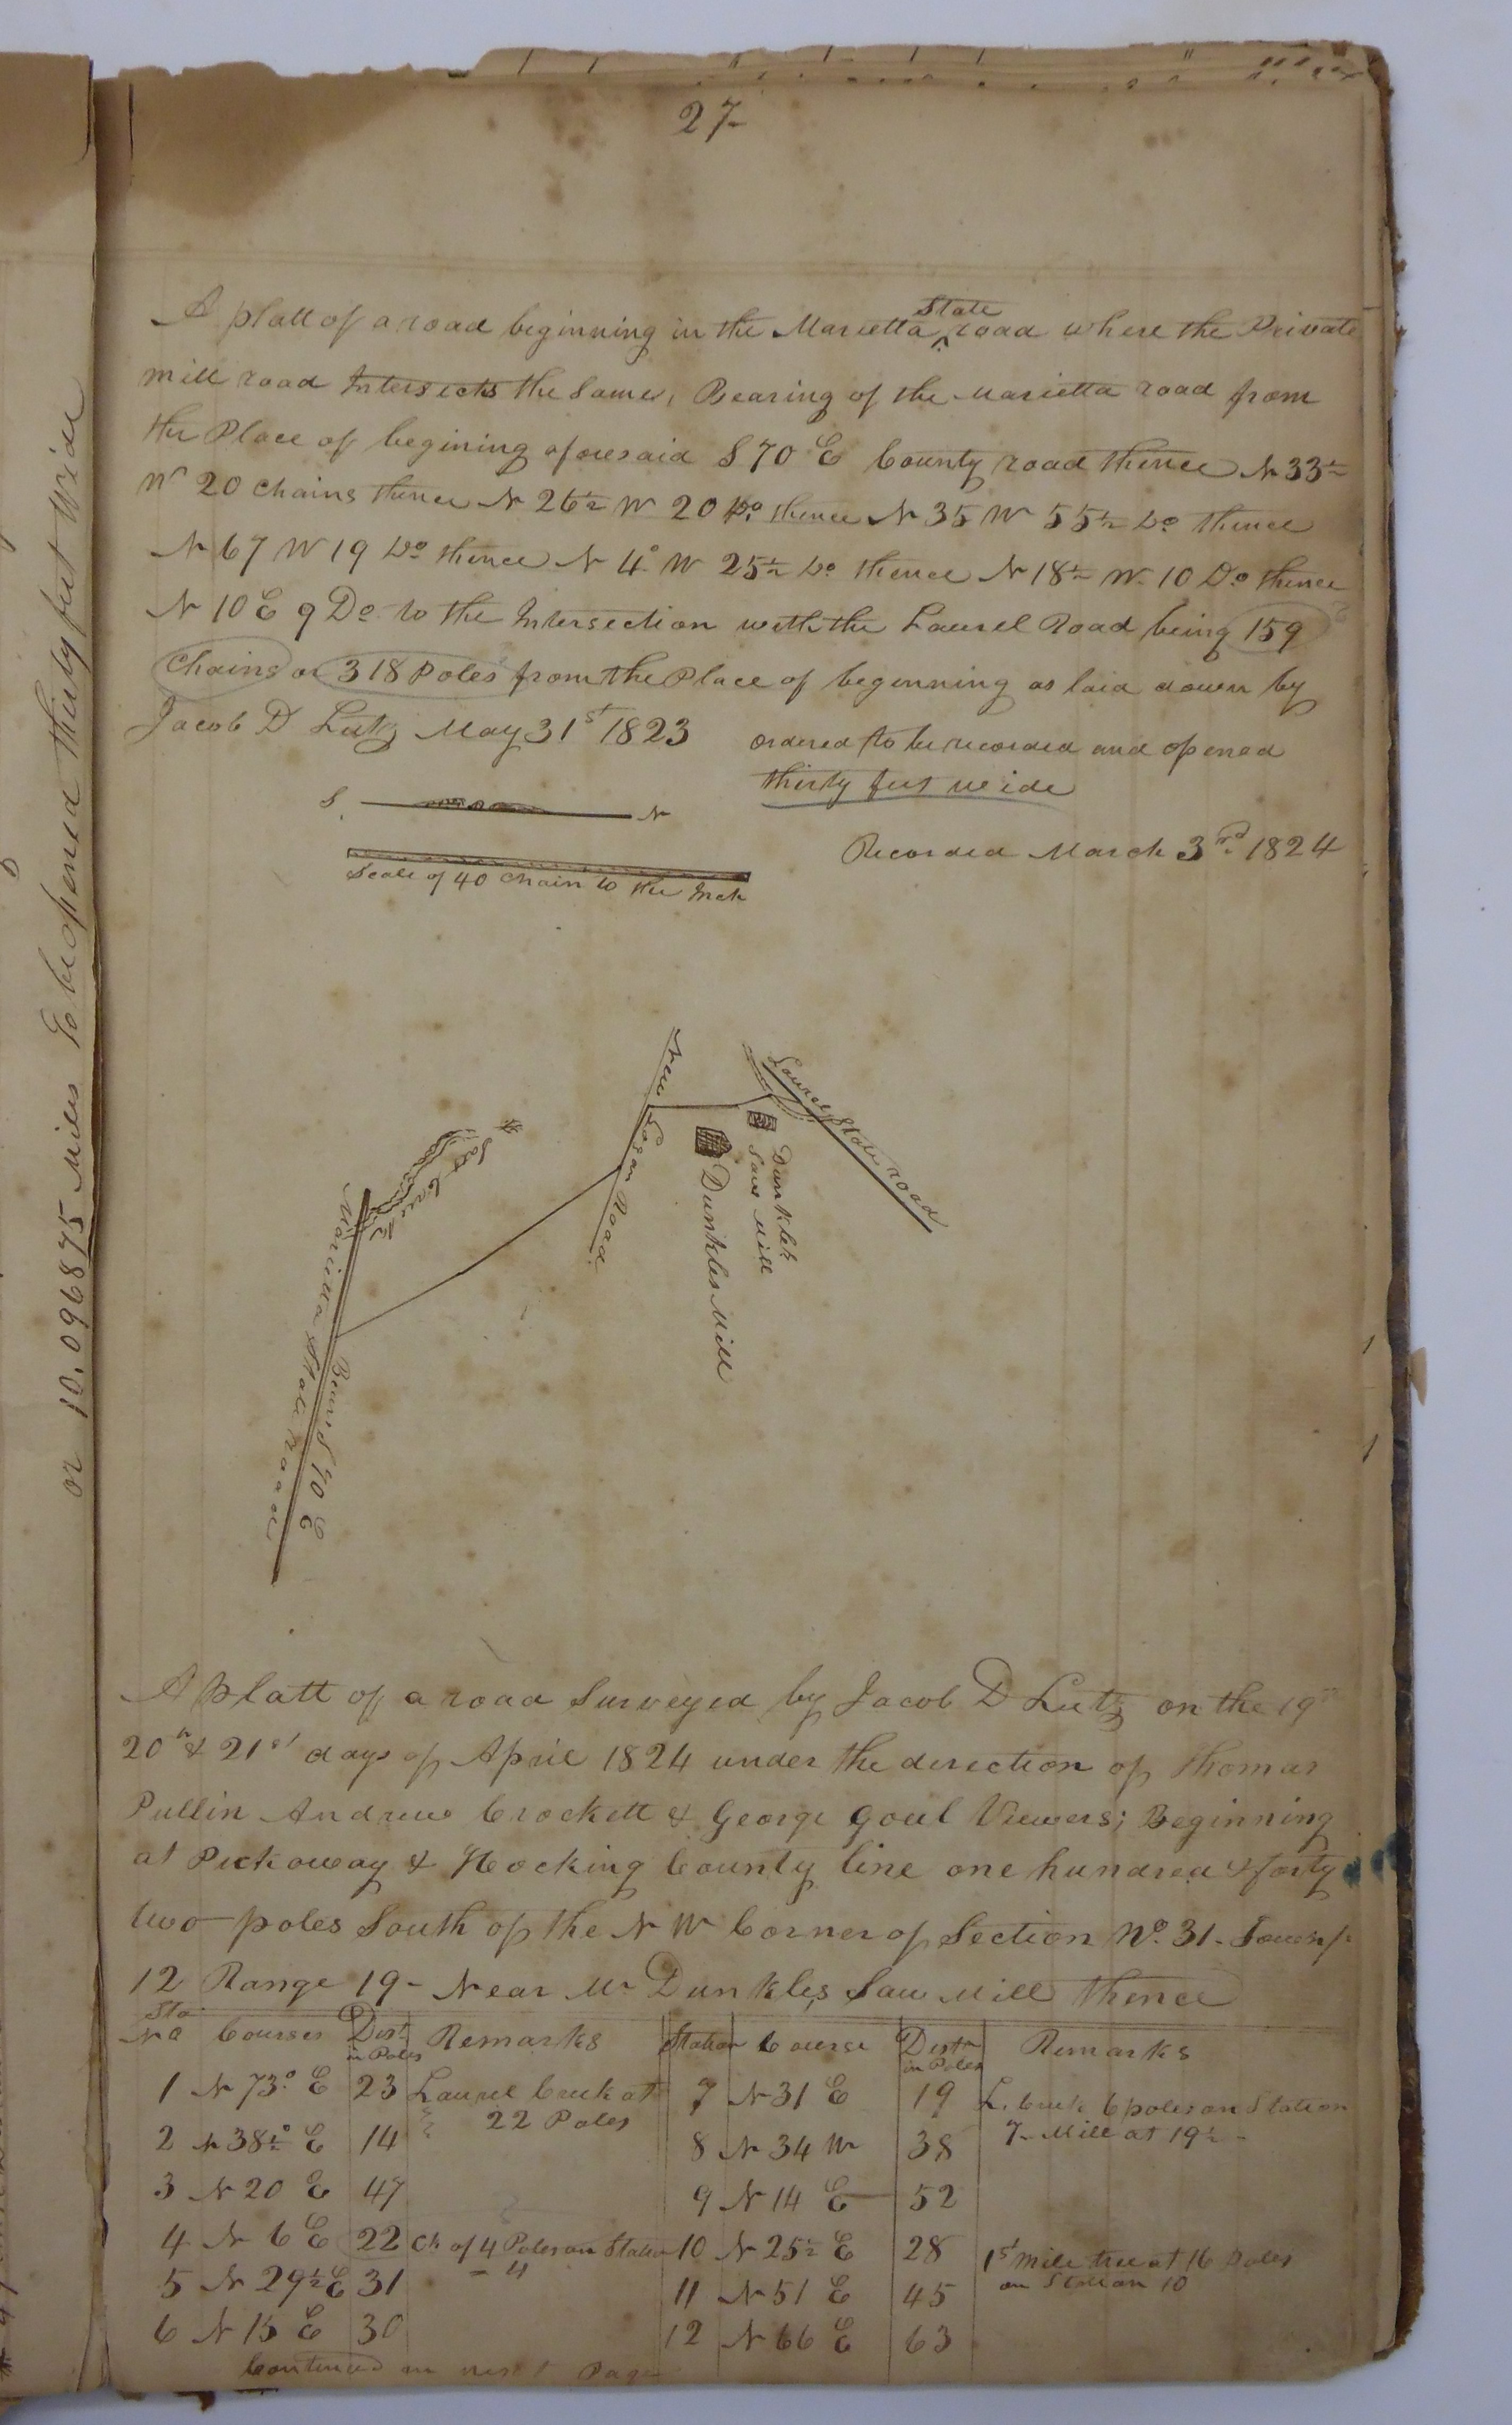 27
A platt of a road beginning in the Marietta State road where the Private
mill road Intersects the Same, Bearing of the Marietta road from
the Place of begining aforesaid S 70 E County road thence N 33½
W 20 Chains thence N 26½ W 20 Do thence N 35 W 55½ Do thence
N 67 W 19 Do thence N 4° W 25½ Do thence N 18½ W 10 Do thence
N 10 E 9 Do to the Intersection with the Laurel Road being 159
Chains or 318 Poles from the Place of beginning as laid down by
Jacob D Lutz May 31st 1823
ordered to be recorded and opened
thirty feet wide
Recorded March 3rd 1824
S. N
Scale of 40 Chain to the Inch
New Logan Road
Laurel State road
Dunkles
Saw Mill
Dunkles Mill
Salt Creek
Marietta State Road
Bears S 70 E
A Platt of a road Surveyed by Jacob D Lutz on the 19th
20th & 21st days of April 1824 under the direction of Thomas
Pullin Andrew Crockett & George Goul Viewers; Beginning
at Pickoway & Hocking County line one hundred & forty
two poles South of the N W Corner of Section No. 31. Township
12 Range 19 - Near Mr Dunkles Saw Mill Thence
Sta No Courses Dist in Poles Remarks Station Course Dist in Poles Remarks
1 N 73° E 23 Laurel Creek at 22 Poles 7 N 31 E 19 L. Creek 6 poles on Station 7- Mill at 19½ -
2 N 38½° E 14 8 N 34 W 38
3 N 20 E 47 9 N 14 E 52
4 N 6 E 22 Ck of 4 Poles on Station - 4 10 N 25½ E 28 1st Mile tree at 16 poles on Station 10
5 N 29½ E 31 11 N 51 E 45
6 N 15 E 30 12 N 66 E 63
Continued on next Page
or 10.096875 Miles To be opened thirty feet Wide